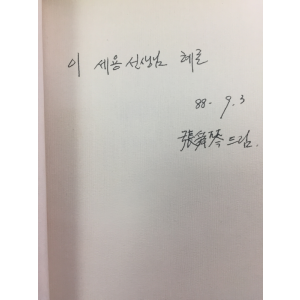 이 세용 선생님 혜존
88. 9. 3
張舜琴 드림.